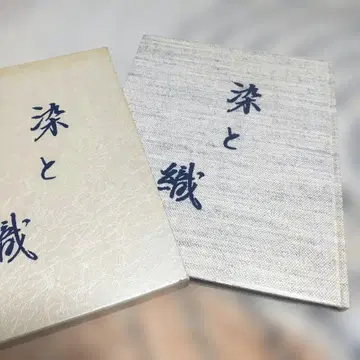 染と
織
染と
織